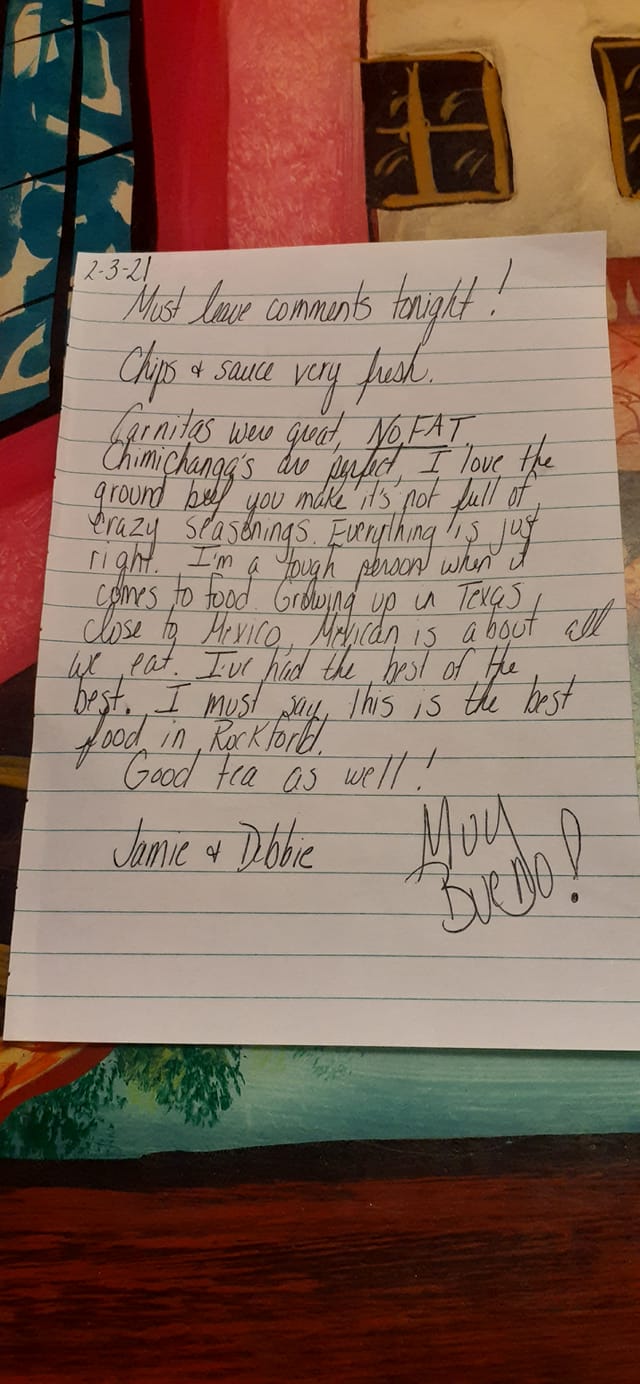 2-3-21
Must leave comments tonight!
Chips & sauce very fresh.
Carnitas were great, NO FAT.
Chimichanga's are perfect, I love the
ground beef you make it's not full of
crazy seasonings. Everything is just
right. I'm a tough person when it
comes to food. Growing up in Texas,
close to Mexico, Mexican is about all
we eat. I've had the best of the
best. I must say, this is the best
food in Rockford.
Good tea as well!
Jamie & Debbie
Muy
Bueno!